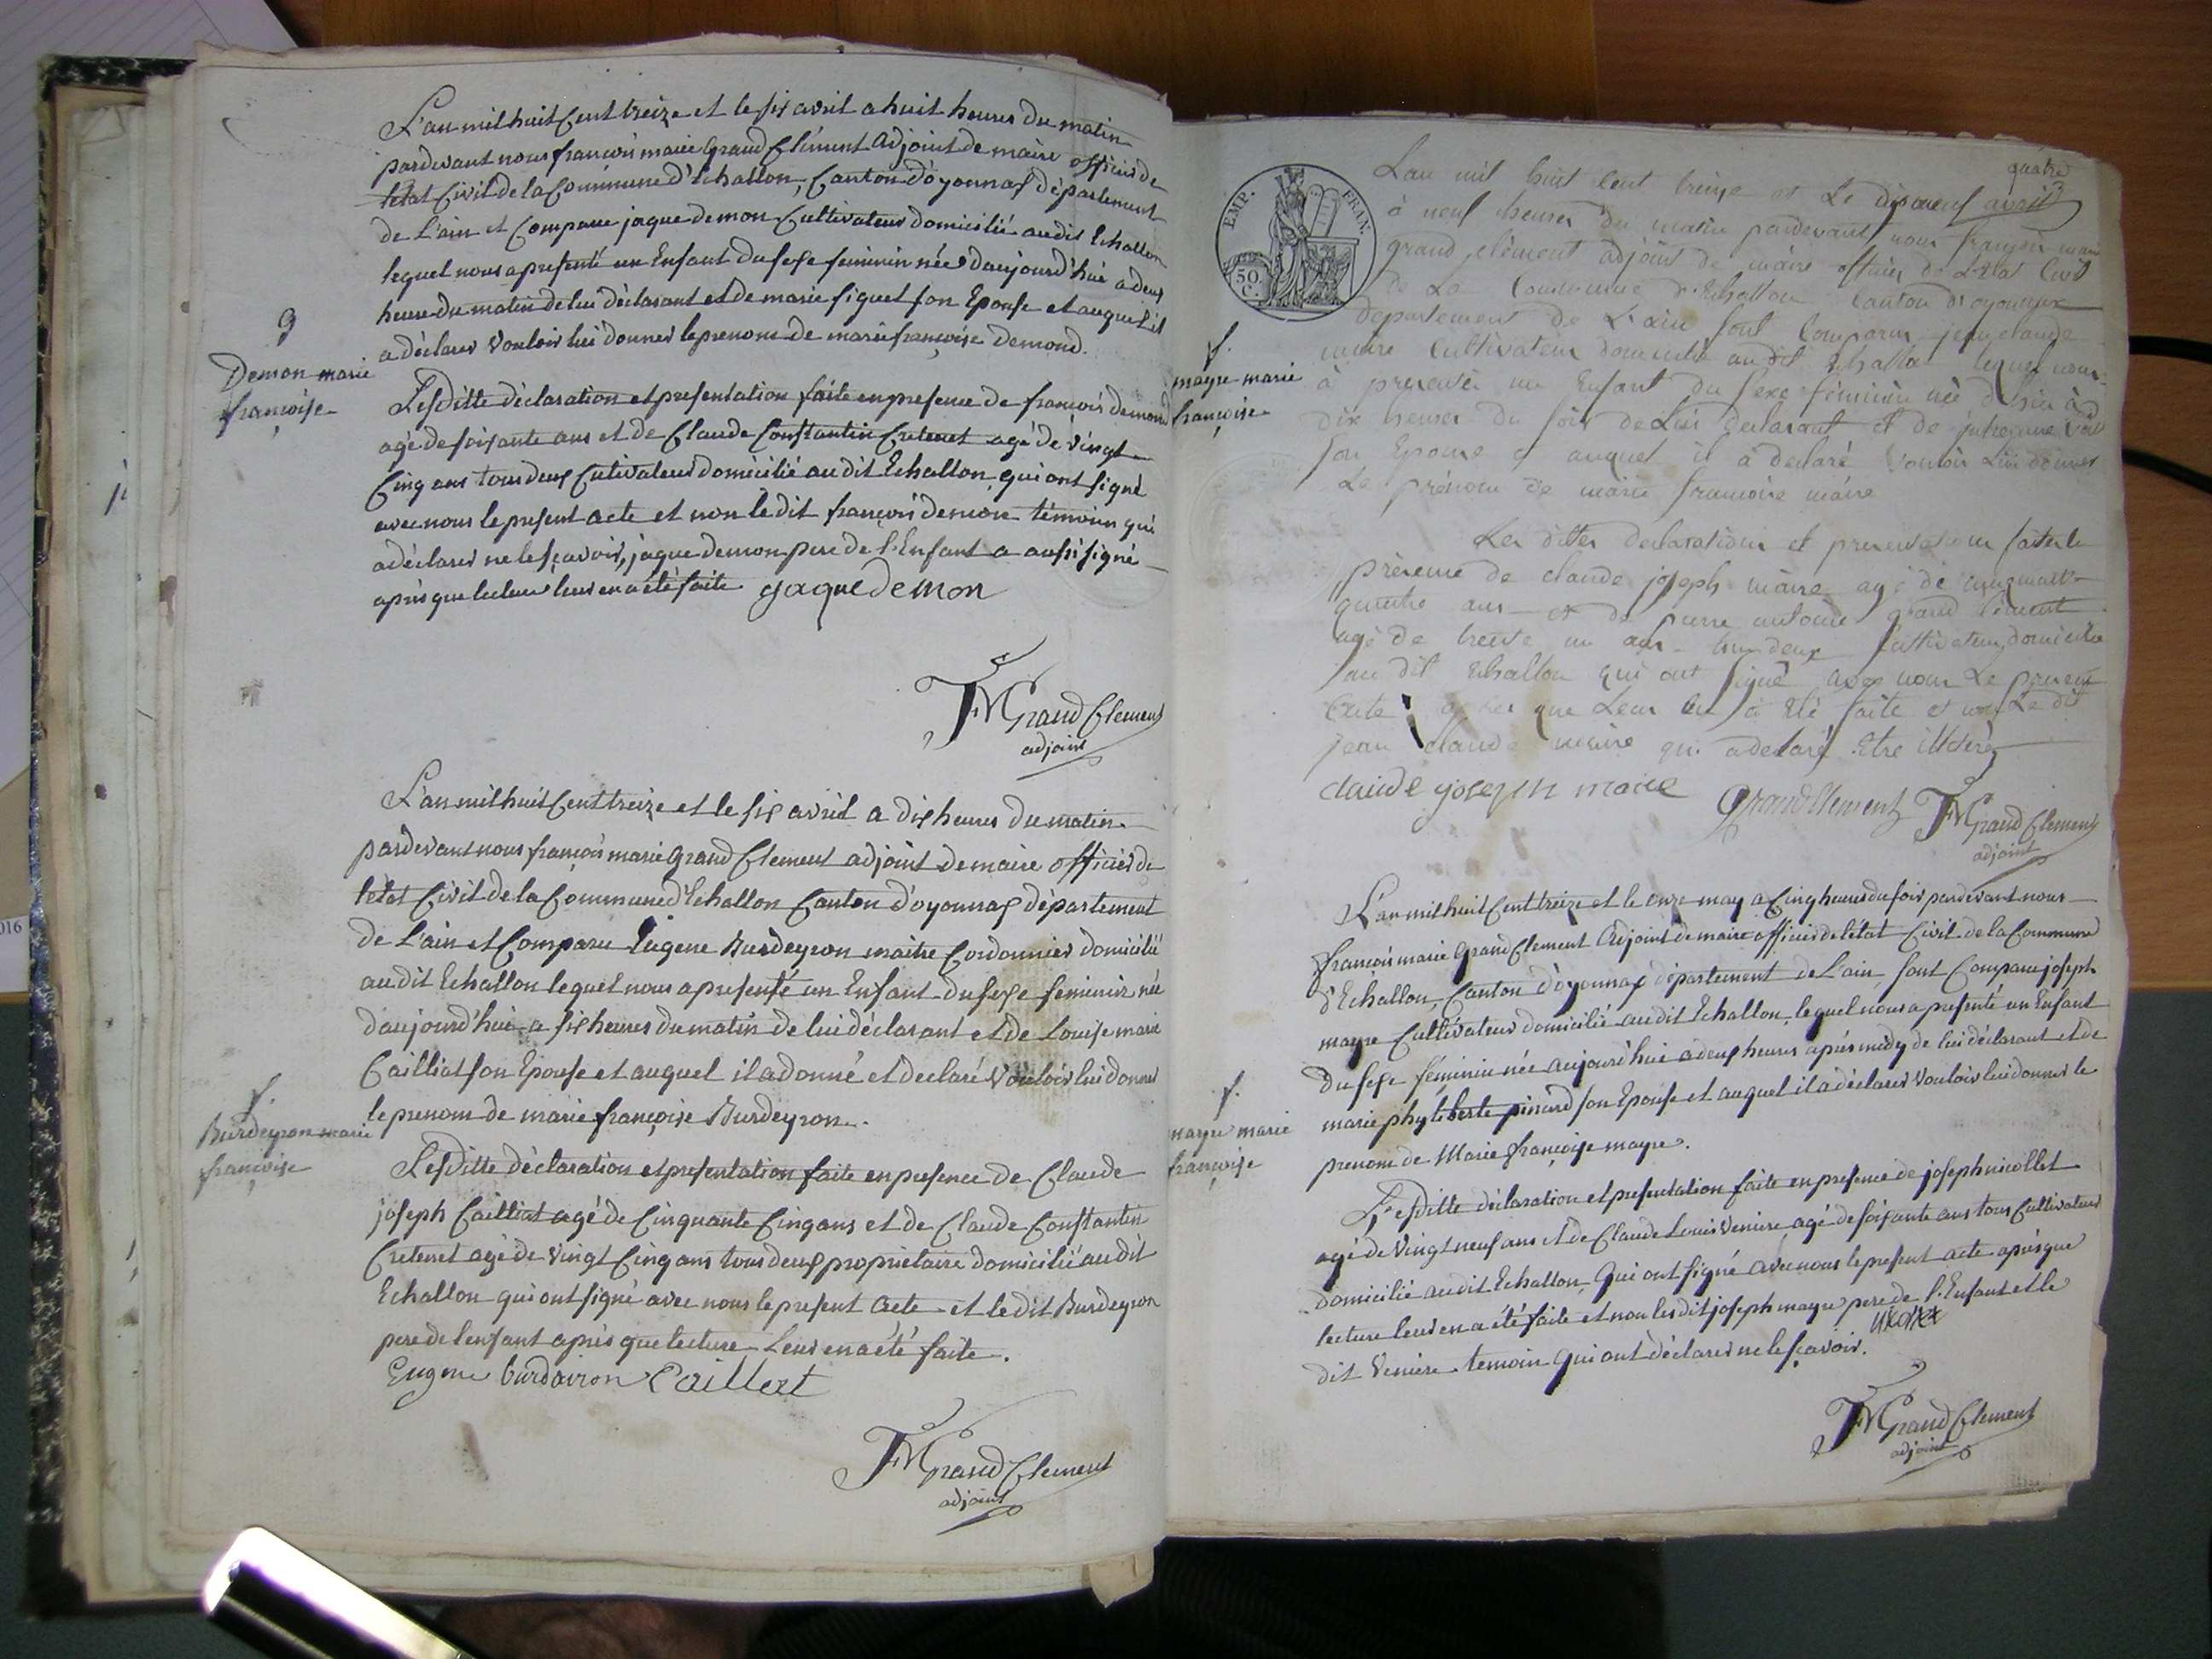 L'an mil huit Cent treize et le six avril a huit heures du matin
pardevant nous françois marie Grand Clément Adjoint de maire officier de
létat Civil de la Commune d'Echallon, Canton d'oyonnax département
de L'ain et Comparu jaque demon Cultivateur domicilié audit Echallon
lequel nous a presenté un Enfant du sexe feminin née d'aujourd'hui a deux
heure du matin de lui déclarant et de marie figuet son Epouse et auquel il
a déclarer Vouloir lui donner le prenom de marie françoise demond.
9
Demon marie
françoise
Lesditte déclaration et presentation faite en presence de françois demond
agé de soixante ans et de Claude Constantin Cretenet agé de vingt
Cinq ans tous deux Cutivateur domicilié audit Echallon qui ont signé
avec nous le present acte et non le dit françois demon témoin qui
a déclarer ne le sçavoir, jaque demon pere de l'Enfant a aussi signé
après que lecture leur en a été faite gaque demon
FM Grand Clement
adjoint
L'an mil huit Cent treize et le six avril a dix heures du matin
pardevant nous françois marie Grand Clement adjoint de maire officier de
létat Civil de la Commune d'Echallon Canton d'oyonnax département
de L'ain et Comparu Eugene Burdeyron maitre Cordonnier domicilié
audit Echallon lequel nous a presenté un Enfant du sexe feminin née
d'aujourd'hui a six heures du matin de lui déclarant et de Louise marie
Cailliat son Epouse et auquel il a donné et declaré Vouloir lui donner
le prenom de marie françoise Burdeyron.
f.
Burdeyron marie
françoise
Lesditte déclaration et presentation faite en presence de Claude
joseph Cailliat agé de Cinquante Cinq ans et de Claude Constantin
Cretenet agé de vingt Cinq ans tous deux propriétaire domicilié audit
Echallon qui ont signé avec nous le present Acte et le dit Burdeyron
pere de l'enfant après que lecture Leur en a été faite.
Eugene burdairon Caillat
FM Grand Clement
adjoint
quatre
EMP. FRAN.
50 C.
L'an mil huit Cent treize et Le dix neuf avril
à neuf heures du matin pardevant nous françois marie
grand clément adjoint de maire officier de L'état Civil
de La Commune d'Echallon Canton d'oyonnax
departement de L'ain sont Comparus jean claude
maire Cultivateur domicilié audit Echallon lequel nous
à presenté un Enfant du sexe féminin né d'hier à
dix heures du soir de Lui déclarant et de
son Epouse et auquel il a déclaré Vouloir Lui donner
Le prénom de marie françoise maire
f.
mayre marie
françoise
Les dittes déclarations et presentations faite
présence de claude joseph maire agé de
quatre ans et de pierre antoine grand clement
agé de trente un ans tous deux Cultivateur domicilié
au dit Echallon qui ont signé avec nous Le present
acte après que Leur a été faite et non Le dit
jean claude maire qui a declaré Etre illitéré
claude joseph maire Grandclement FM Grand Clement
adjoint
L'an mil huit Cent treize et le onze may a Cinq heures du soir pardevant nous
françois marie Grand Clement Adjoint de maire officier de létat Civil de la Commune
d'Echallon, Canton d'oyonnax département de L'ain, sont Comparu joseph
mayre Cultivateur domicilié audit Echallon, lequel nous a presenté un Enfant
du sexe féminin née aujourd'hui a deux heures après midy de lui déclarant et de
marie phyliberte pinard son Epouse et auquel il a déclarer Vouloir lui donner le
prenom de Marie françoise mayre.
f.
mayre marie
françoise
Lesditte déclaration et presentation faite en presence de joseph nicollet
agé de Vingt neuf ans et de Claude Louis Veniere agé de soixante ans tous Cultivateur
domicilié audit Echallon, Qui ont signé avec nous le present acte après que
lecture leur en a été faite et non les dit joseph mayre pere de l'Enfant et le
dit Veniere temoin Qui ont déclarer ne le sçavoir.
FM Grand Clement
adjoint